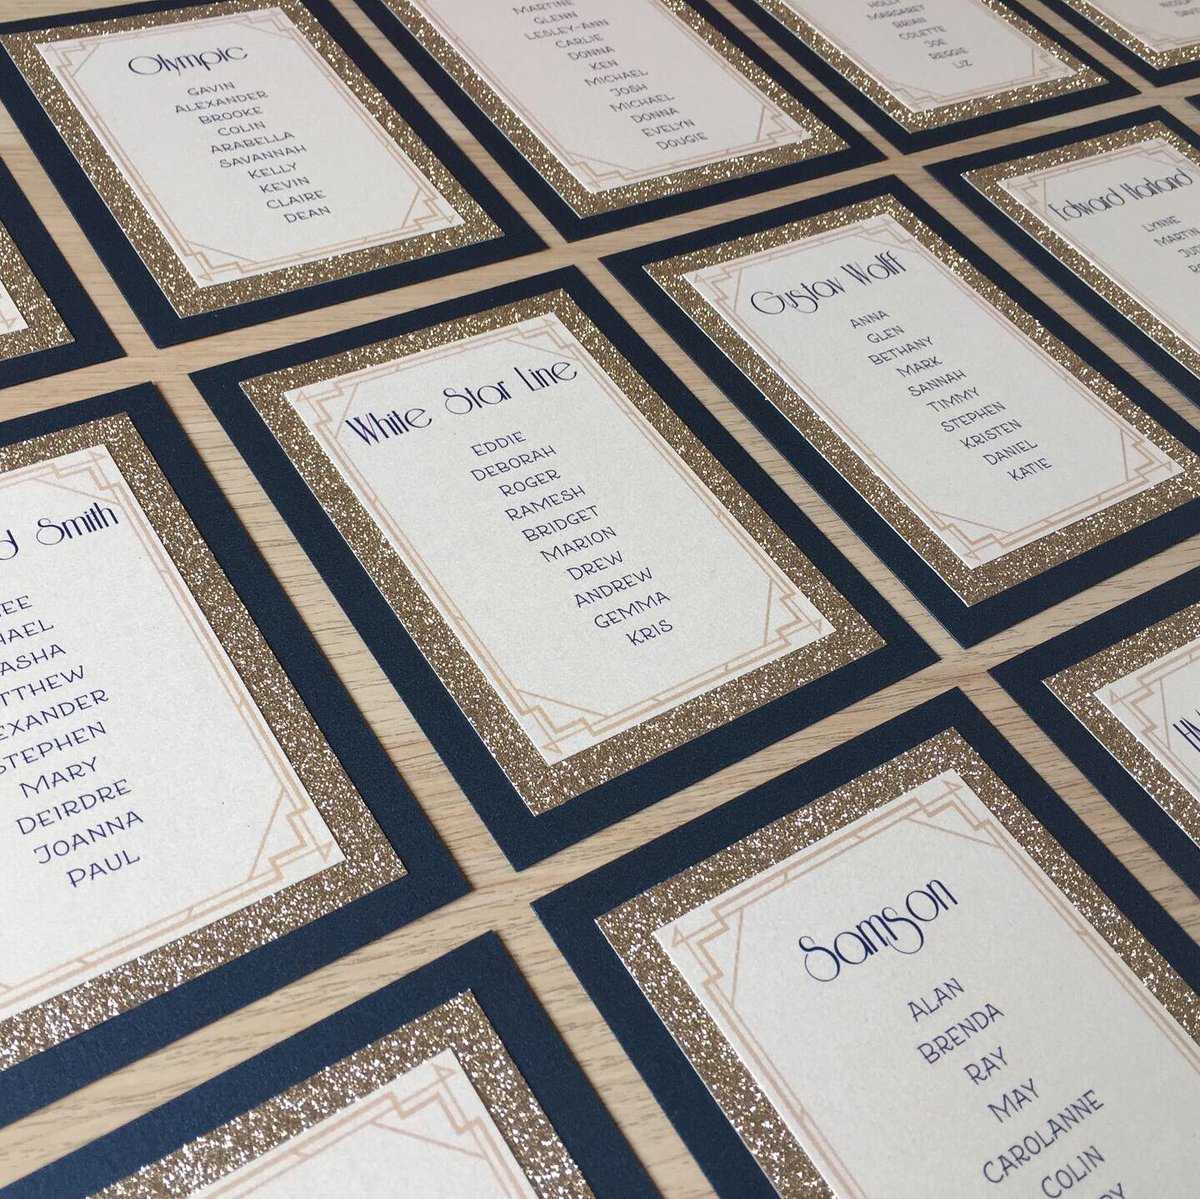 Olympic
GAVIN
ALEXANDER
BROOKE
COLIN
ARABELLA
SAVANNAH
KELLY
KEVIN
CLAIRE
DEAN
MARTINE
GLENN
LESLEY-ANN
CARLIE
DONNA
KEN
MICHAEL
JOSH
MICHAEL
DONNA
EVELYN
DOUGIE
MARGARET
BRIAN
COLETTE
JOE
REGGIE
LIZ
Edward Harland
LYNNE
MARTIN
Gustav Wolff
ANNA
GLEN
BETHANY
MARK
SANNAH
TIMMY
STEPHEN
KRISTEN
DANIEL
KATIE
White Star Line
EDDIE
DEBORAH
ROGER
RAMESH
BRIDGET
MARION
DREW
ANDREW
GEMMA
KRIS
Smith
STEPHEN
MARY
DEIRDRE
JOANNA
PAUL
Samson
ALAN
BRENDA
RAY
MAY
CAROLANNE
COLIN